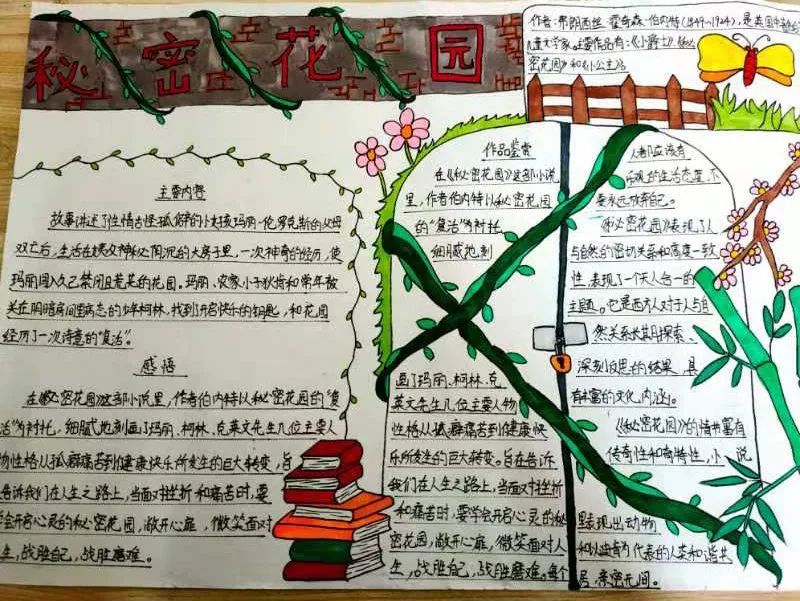 秘密花园
作者:弗朗西丝·霍奇森·伯内特(1849~1924),是美国
儿童文学家,主要作品有:《小爵士》《秘
密花园》和《小公主》。
主要内容
故事讲述了性情古怪孤僻的小女孩玛丽-伦罗克斯的父母
双亡后,生活在姨父神秘阴沉的大房子里,一次神奇的经历,使
玛丽闯入久已禁闭且荒芜的花园。玛丽、农家小子狄肯和常年被
关在阴暗房间里病态的少年柯林,找到开启快乐的钥匙,和花园
经历了一次诗意的"复活"。
感悟
在《秘密花园》这部小说里,作者伯内特以秘密花园的"复
活"为衬托,细腻地刻画了玛丽、柯林、克英文先生几位主要人
物性格从孤癖痛苦到健康快乐所发生的巨大转变,旨
告诉我们在人生之路上,当面对挫折和痛苦时,要
学会开启心灵的秘密花园,敞开心扉,微笑面对
生,战胜自己,战胜磨难。
作品鉴赏
在《秘密花园》这部小说
里,作者伯内特以秘密花园
的"复活"为衬托
细腻地刻
画了玛丽、柯林、克
英文先生几位主要人物
性格从孤癖痛苦到健康快
乐所发生的巨大转变。旨在告诉
我们在人生之路上,当面对挫折
和痛苦时,要学会开启心灵的秘
密花园,敞开心扉,微笑面对人
生,战胜自己,战胜磨难。每个
人都应该有
乐观的生活态度,不
要永远放弃自己。
《秘密花园》表现了人
与自然的密切关系和高度一致
性,表现了一个天人合一的
主题。它是西方人对于人与自
然关系长期探索、
深刻反思的结果,具
有丰富的文化内涵。
《秘密花园》的情节富有
传奇性和奇特性,小说
里表现出动物
和以 为代表的人类和谐共
居,亲密无间。